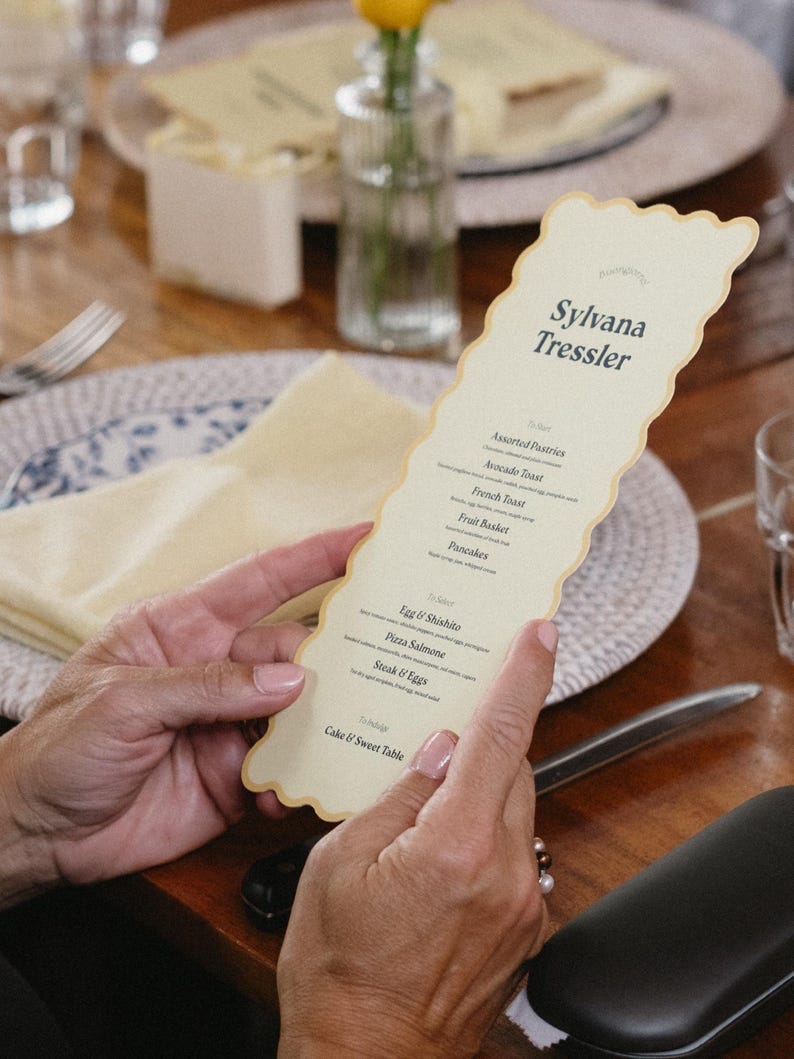 Buongiorno
Sylvana
Tressler
To Start
Assorted Pastries
Chocolate, almond and plain croissant
Avocado Toast
Toasted pugliese bread, avocado, radish, poached egg, pumpkin seeds
French Toast
Brioche, egg, berries, cream, maple syrup
Fruit Basket
Assorted selection of fresh fruit
Pancakes
Maple syrup, jam, whipped cream
To Select
Egg & Shishito
Spicy tomato sauce, shishito peppers, poached eggs, parmigiano
Pizza Salmone
Smoked salmon, mozzarella, chive mascarpone, red onion, capers
Steak & Eggs
7oz dry aged striploin, fried egg, mixed salad
To Indulge
Cake & Sweet Table